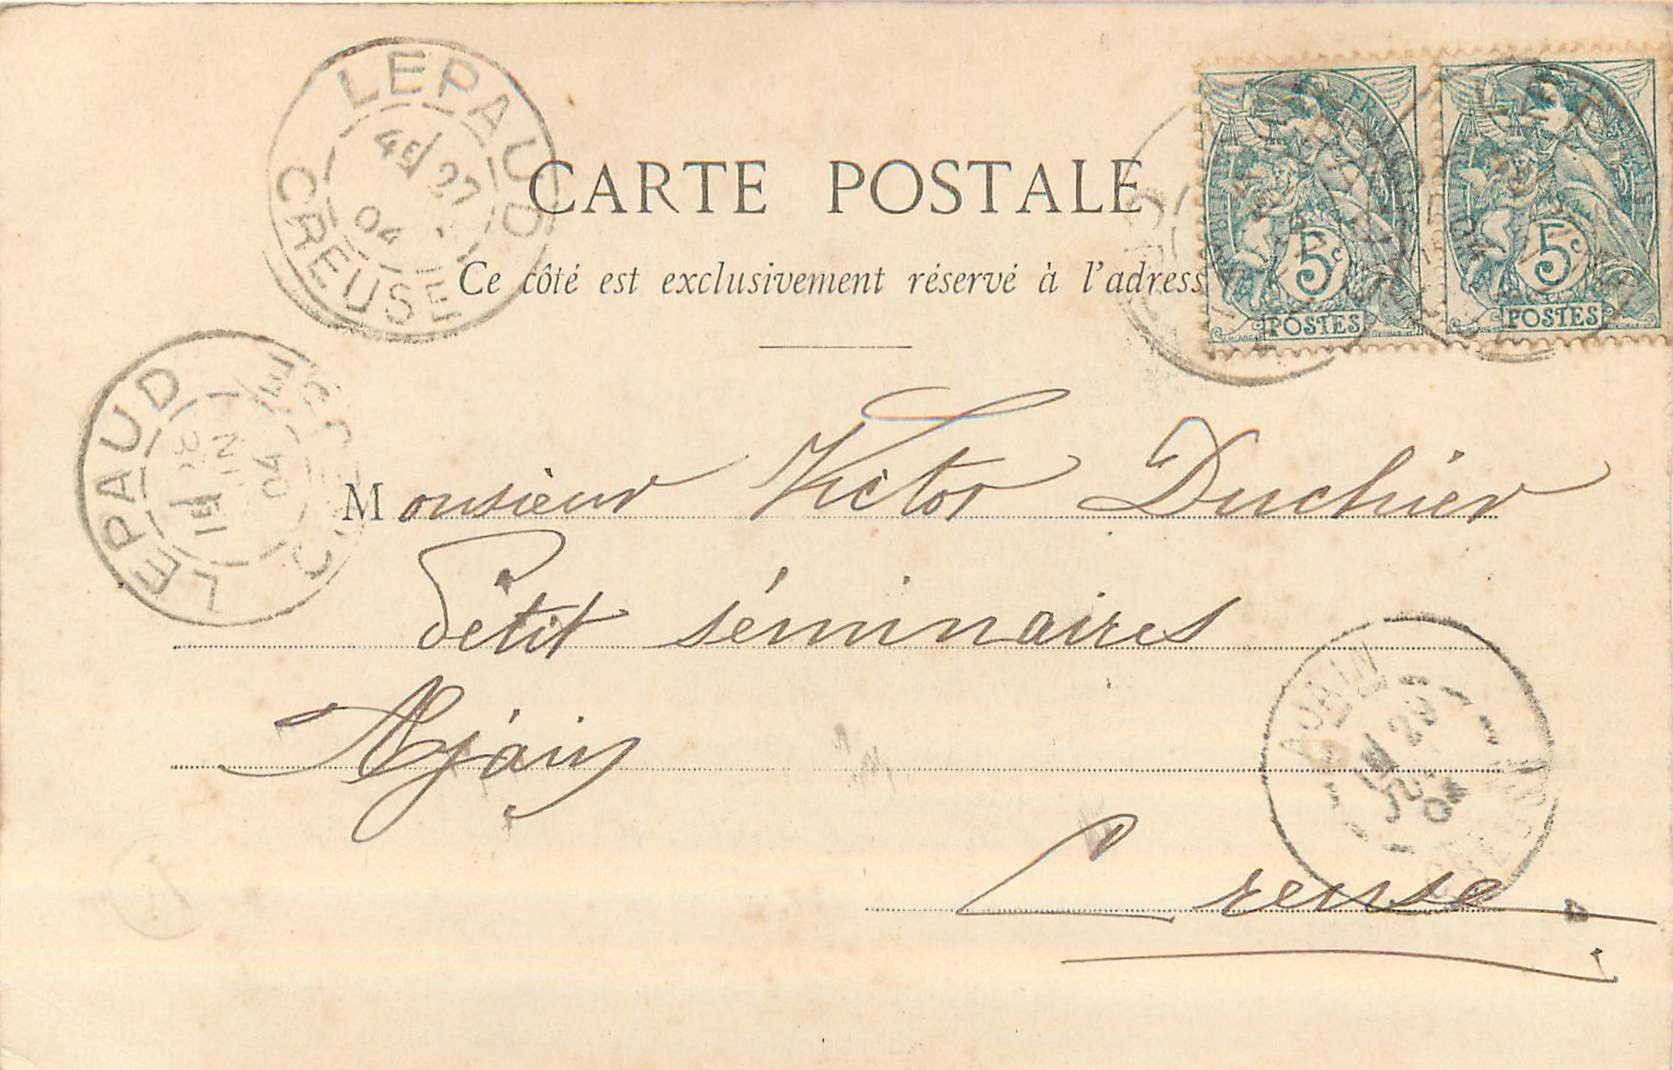 LEPAUD
4E 27
04
CREUSE
CARTE POSTALE
Ce côté est exclusivement réservé à l'adress
5c
POSTES
5c
POSTES
LEPAUD
04
Monsieur Victor Duchier
Petit séminaires
Ajain
Creuse
AJAIN
04
CREUSE
4